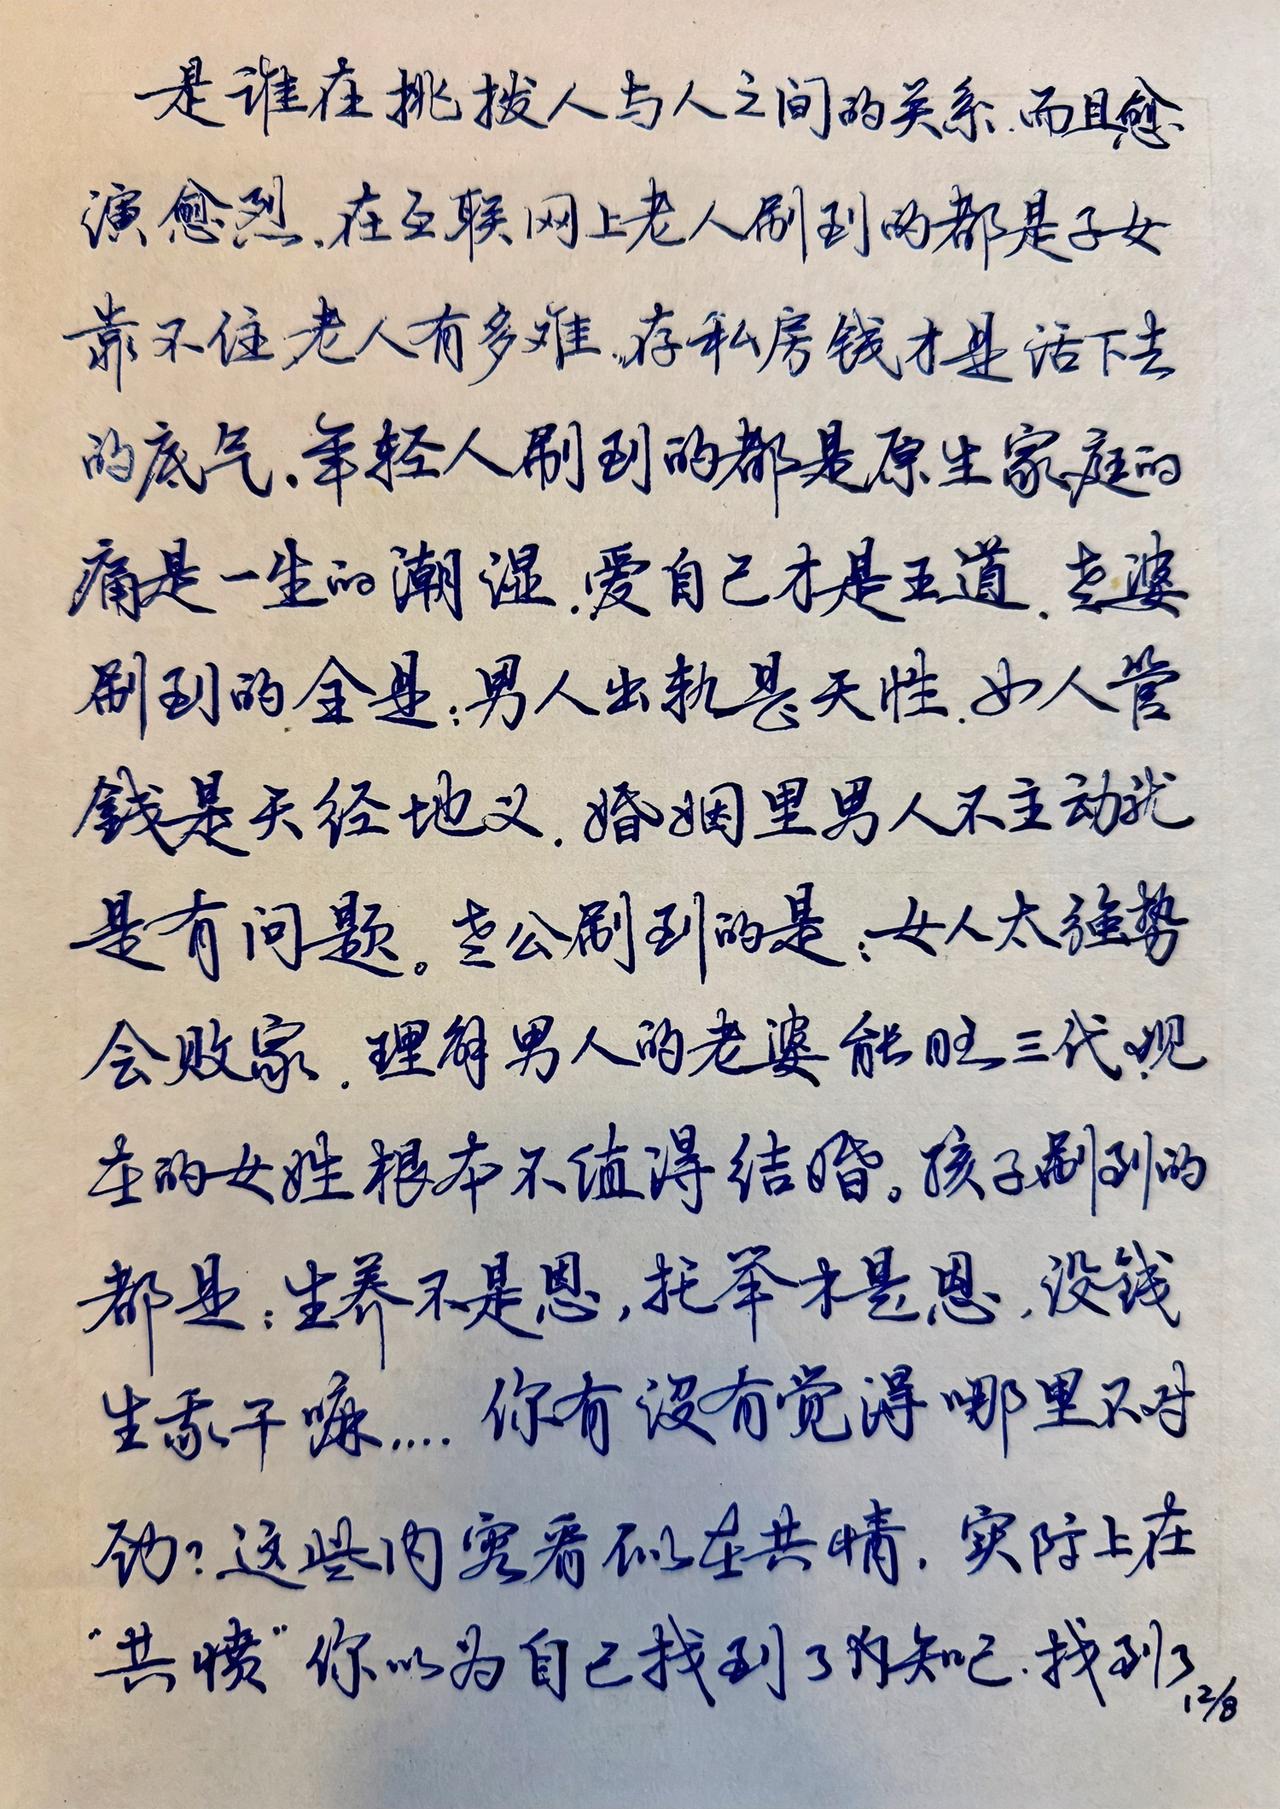 是谁在挑拨人与人之间的关系.而且愈
演愈烈.在互联网上老人刷到的都是子女
靠不住老人有多难.存私房钱才是活下去
的底气.年轻人刷到的都是原生家庭的
痛是一生的潮湿.爱自己才是王道.老婆
刷到的全是:男人出轨是天性.女人管
钱是天经地义.婚姻里男人不主动就
是有问题。老公刷到的是:女人太强势
会败家.理解男人的老婆能旺三代.现
在的女姓根本不值得结婚。孩子刷到的
都是:生养不是恩,托举才是恩.没钱
生我干嘛....你有没有觉得哪里不对
劲?这些内容看似在共情.实际上在
“共愤”你以为自己找到了知己.找到了
12/8